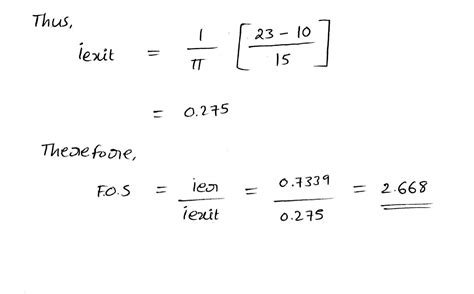 Thus,
iexit = 1/π [ 23 - 10 / 15 ]
= 0.275
Therefore,
F.O.S = icr / iexit = 0.7339 / 0.275 = 2.668